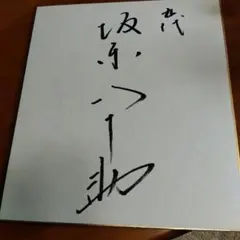 五代
坂東八十助